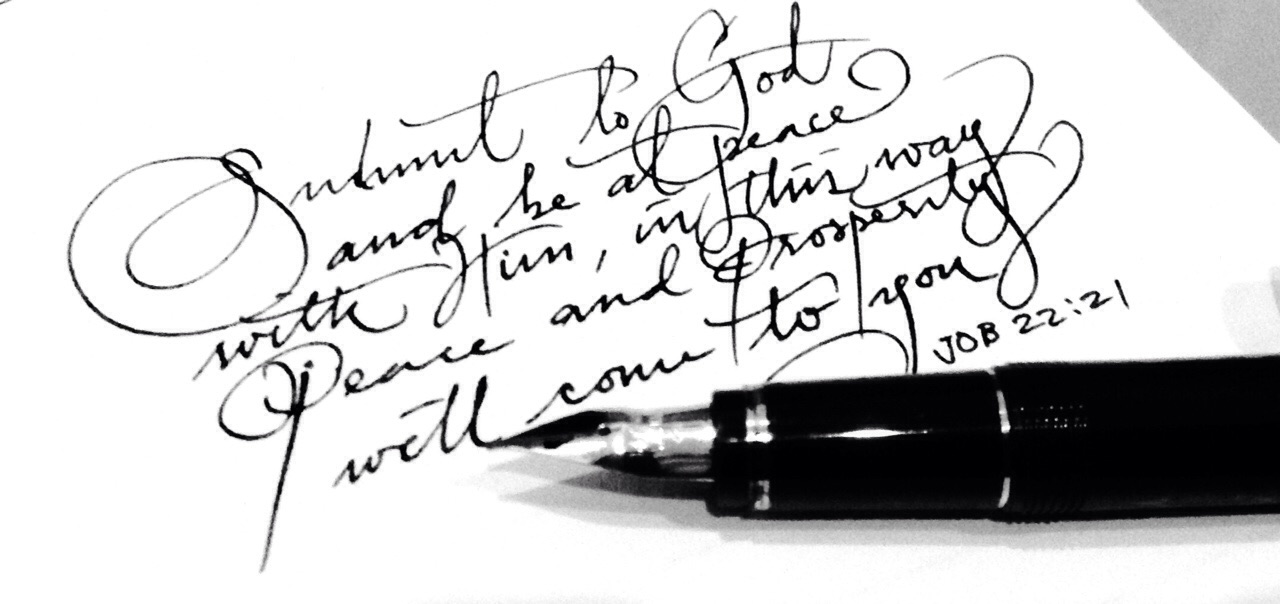 Submit to God
and be at peace
with Him, in this way
Peace and Prosperity
will come to you
JOB 22:21